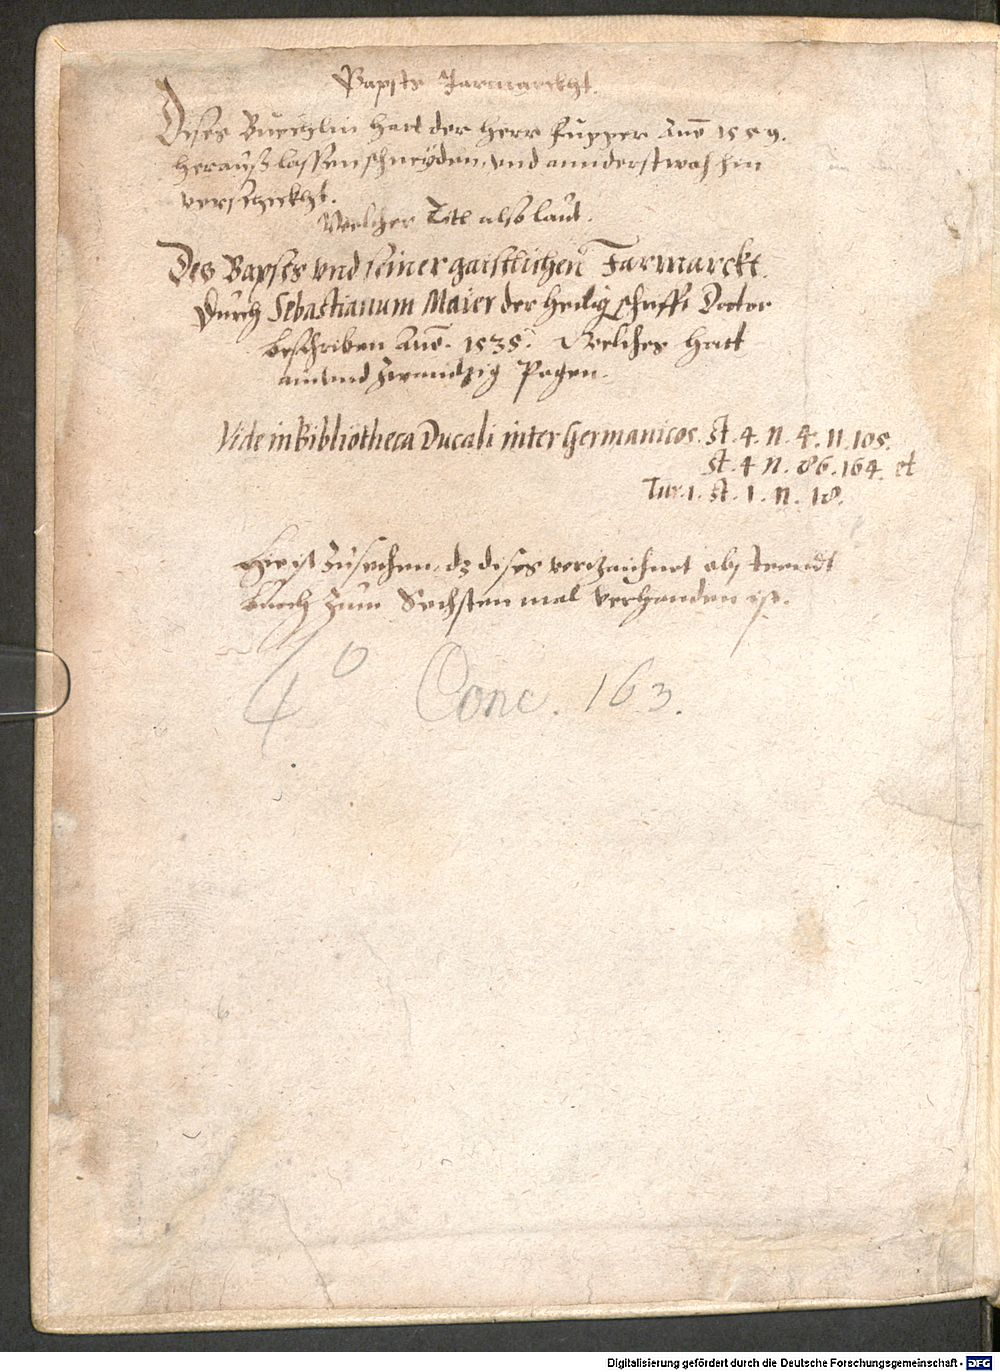 Bapsts Jarmarckht.
Dises Büechlin hatt der Herr Fugger Añō 1559.
herauß lassen schneyden, und annderstwah hin
verschickht.
Welcher Titl also laut.
Des Bapsts und seiner gaistlichen Jarmarckt.
Durch Sebastianum Maier der heilig schrifft Doctor
beschriben Añō. 1535. Welches hatt
ainund zwaindzig Pogen.
Vide in Bibliotheca Ducali inter Germanicos. st. 4. n. 4. 11. 105.
st. 4 n. 86. 164. et
Tur. 1. st. 1. n. 18.
Hie ist zusechen, dz dises verzaichnet
buech zum Sechsten mal verhanden ist.
4° Conc. 163.
Digitalisierung gefördert durch die Deutsche Forschungsgemeinschaft - DFG